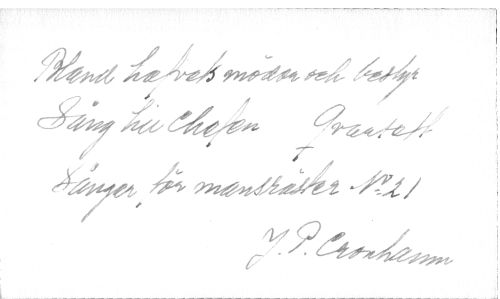 Bland hafvets mödor och bestyr
Sång till Chefen Qvartett
Sånger för mansröster No 21
J. P. Cronhamn